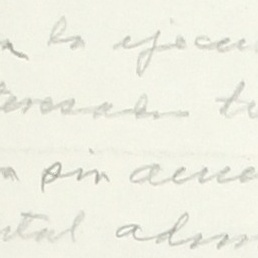 a la ejecu
teresados t
a sin acue
ntal adm